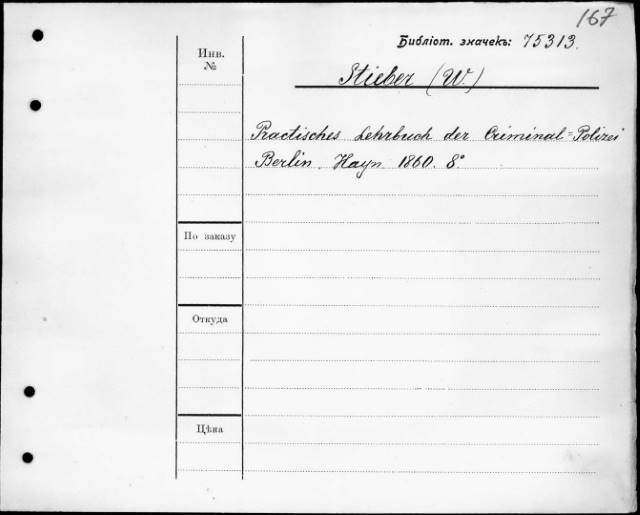 167
Библіот. значекъ: 75313.
Инв.
№
Stieber (W.)
Practisches Lehrbuch der Criminal=Polizei
Berlin. Hayn. 1860. 8°
По заказу
Откуда
Цѣна